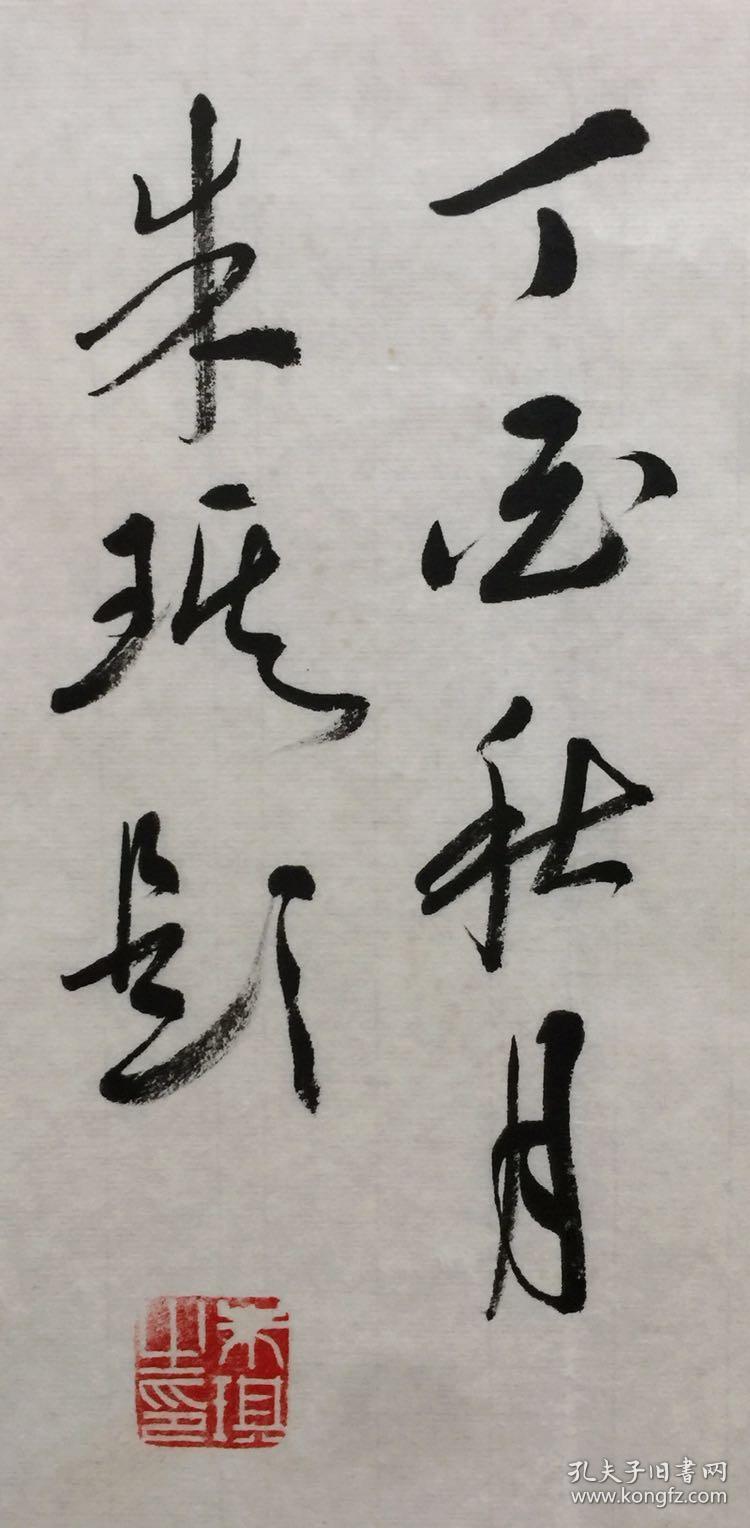 丁酉秋月
朱琪题
朱琪之印
孔夫子旧書网
www.kongfz.com